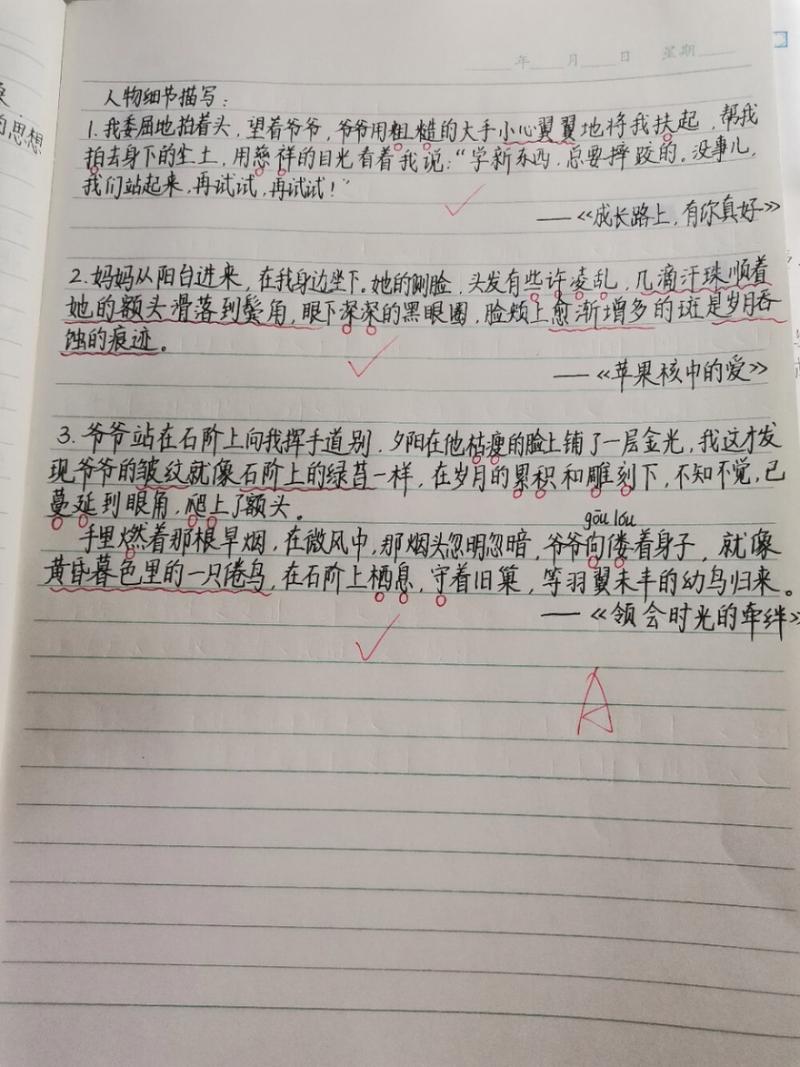 年 月 日 星期
人物细节描写：
1.我委屈地抬着头，望着爷爷，爷爷用粗糙的大手小心翼翼地将我扶起，帮我
拍去身下的尘土，用慈祥的目光看着我说：“学新东西，总要摔跤的。没事儿，
我们站起来，再试试，再试试！”
——《成长路上，有你真好》
2.妈妈从阳台进来，在我身边坐下。她的侧脸，头发有些许凌乱，几滴汗珠顺着
她的额头滑落到鬓角，眼下深深的黑眼圈，脸颊上愈渐增多的斑是岁月吞
蚀的痕迹。
——《苹果核中的爱》
3.爷爷站在石阶上向我挥手道别，夕阳在他枯瘦的脸上铺了一层金光，我这才发
现爷爷的皱纹就像石阶上的绿苔一样，在岁月的累积和雕刻下，不知不觉，已
蔓延到眼角，爬上了额头。
gōu lóu
手里燃着那根旱烟，在微风中，那烟头忽明忽暗，爷爷佝偻着身子，就像
黄昏暮色里的一只倦鸟，在石阶上栖息，守着旧巢，等羽翼未丰的幼鸟归来。
——《领会时光的牵绊》
A
的思想